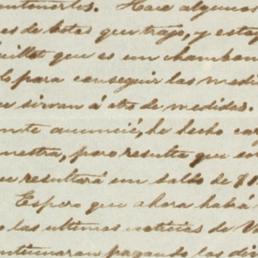 Hace algunos
es de botas que trajo, y estoy
que es un chambon
para conseguir las medi
sirvan á otro de medidas.
te anuncié, he hecho car
muestra, pero resulta que son
resultará un saldo de $1
Espero que ahora habrá
las ultimas noticias de V
continuaran pagando los div